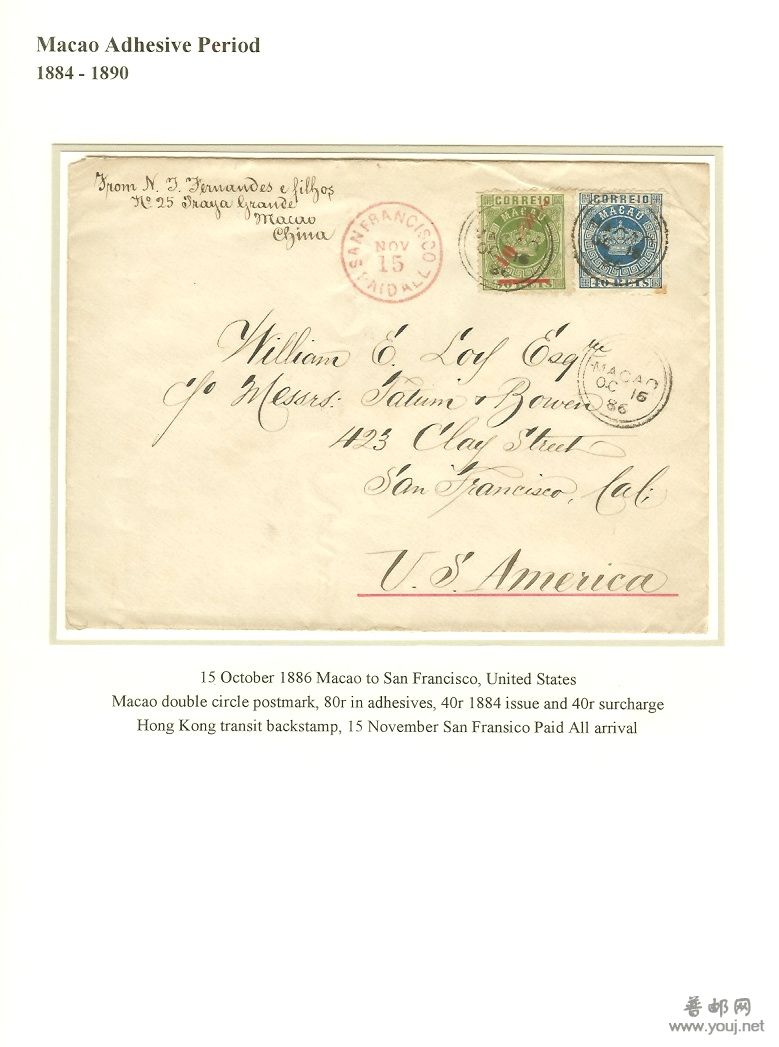 Macao Adhesive Period
1884 - 1890
From N. T. Fernandes e filhos
No 25 Praya Grande
Macao
China
SAN FRANCISCO
NOV
15
PAID ALL
CORREIO
MACAU
CORREIO
MACAU
40 REIS
William E. Loy Esqre
c/o Messrs: Tatum & Bowen
423 Clay Street
San Francisco, Cal:
U. S. America
MACAO
OC 16
86
15 October 1886 Macao to San Francisco, United States
Macao double circle postmark, 80r in adhesives, 40r 1884 issue and 40r surcharge
Hong Kong transit backstamp, 15 November San Fransico Paid All arrival
普邮网
www.youj.net